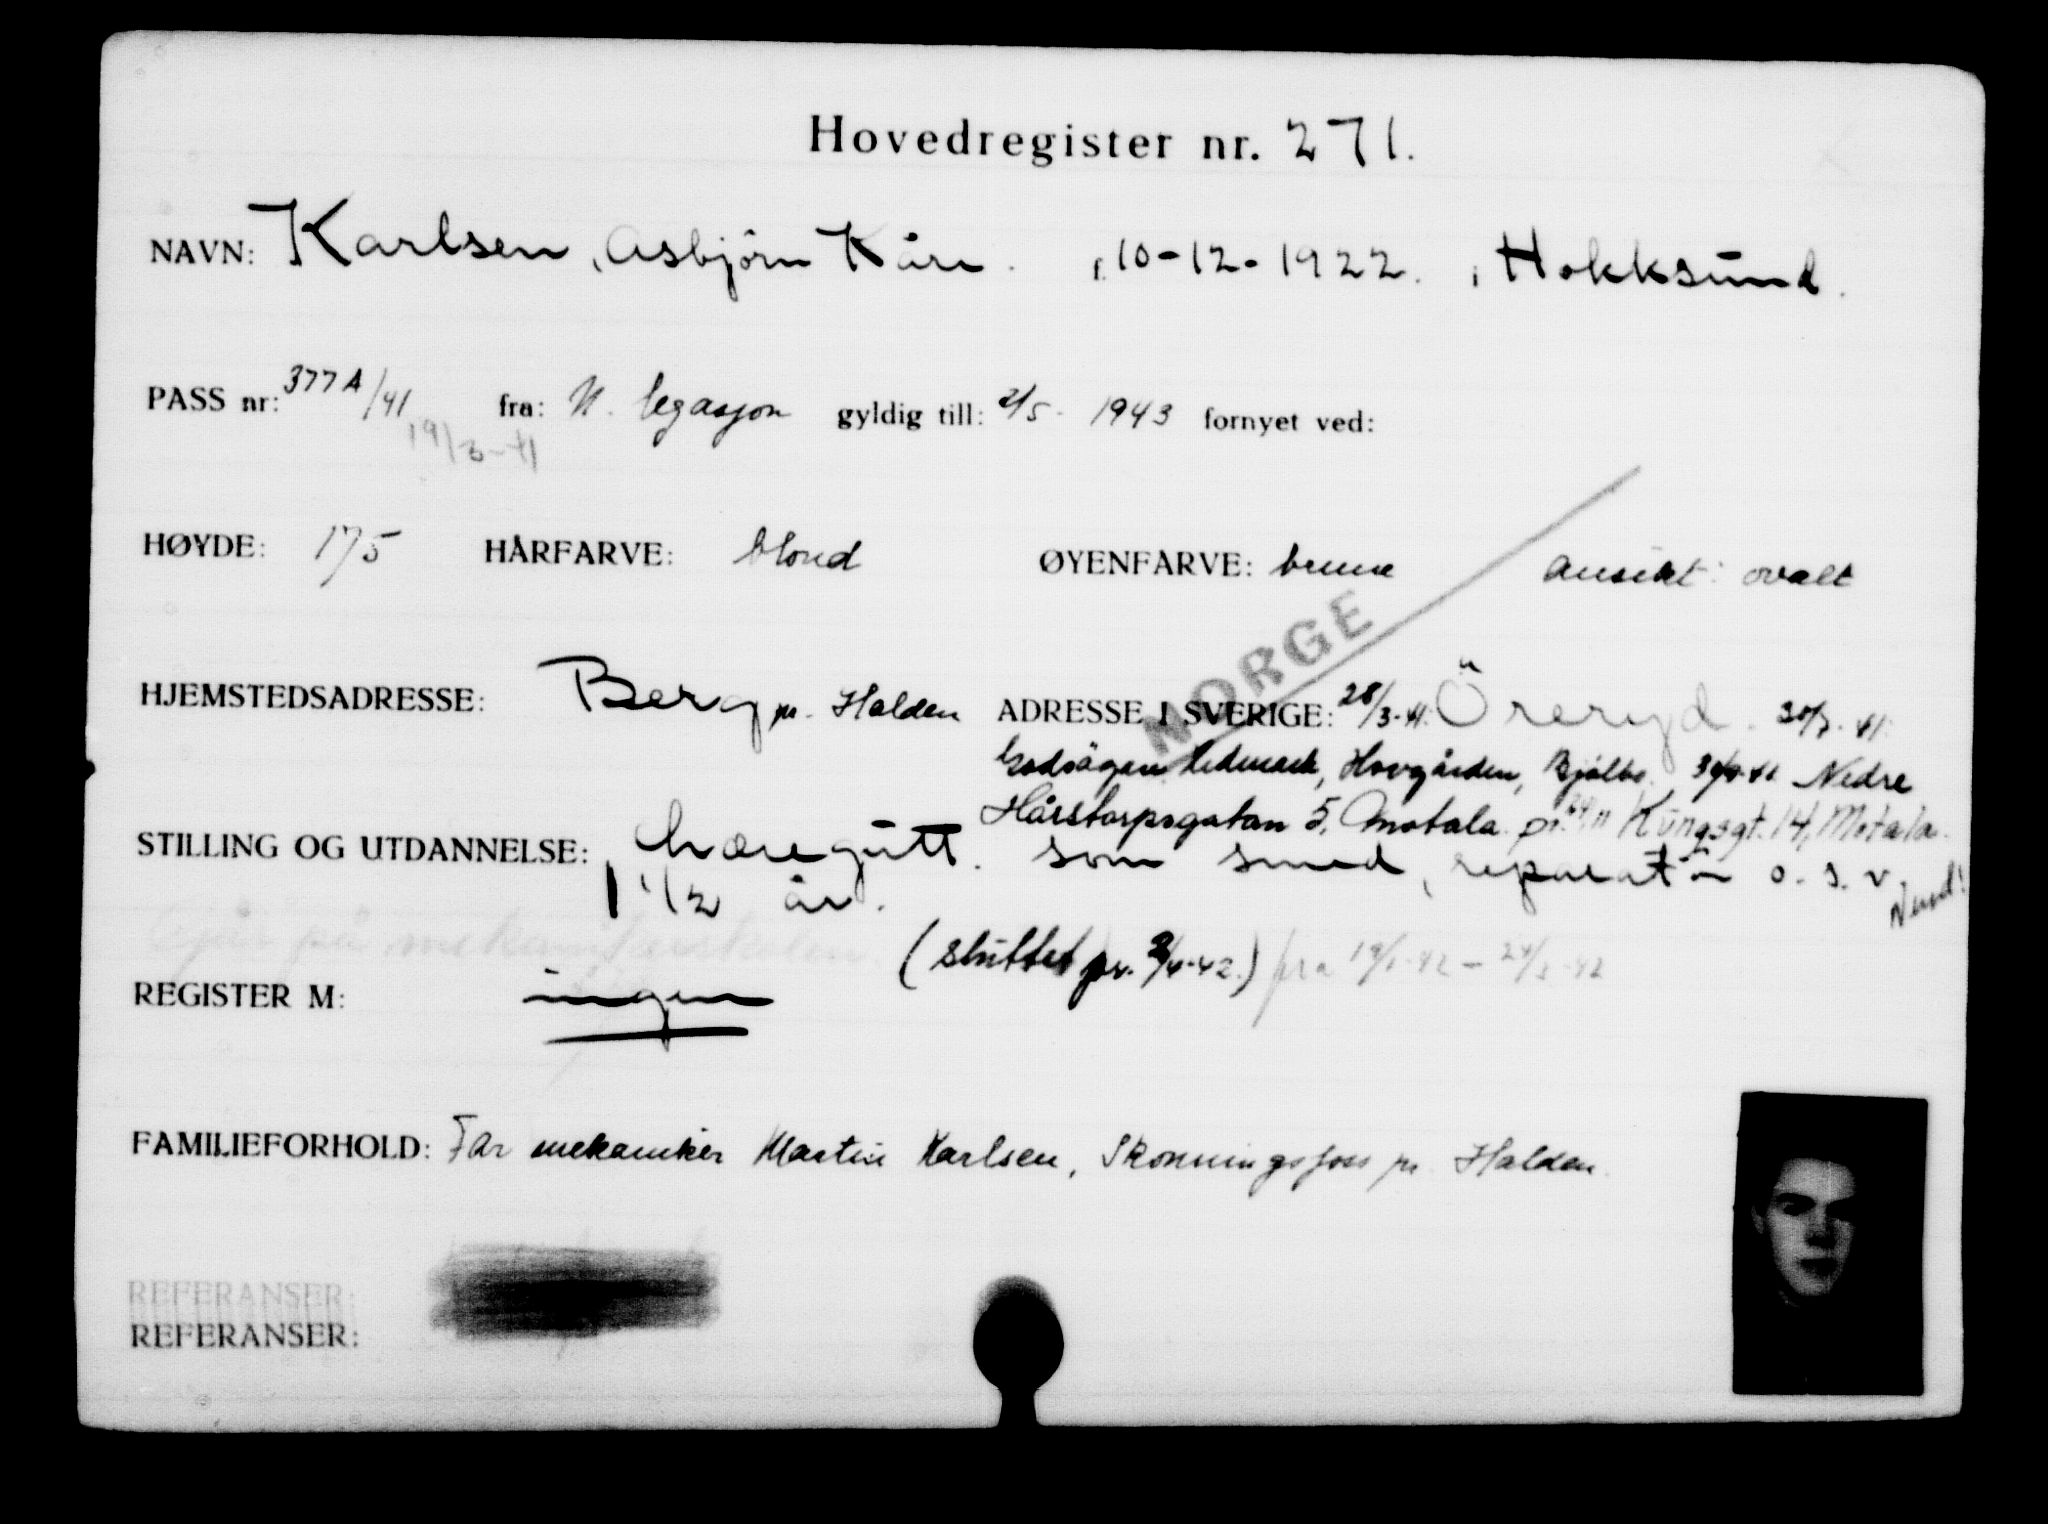 Hovedregister nr. 271.
NAVN: Karlsen, Asbjörn Kåre. f. 10-12-1922. i Hokksund.
PASS nr: 377A/41 fra: N. legasjon gyldig till: 2/5- 1943 fornyet ved:
19/3-41
HØYDE: 175 HÅRFARVE: blond ØYENFARVE: brune Ansikt: ovalt
NORGE
HJEMSTEDSADRESSE: Berg pr. Halden ADRESSE I SVERIGE: 28/3-41: Öreryd. 41:
Godsägare Hedmark, Hovgården, Bjälbo. Nedre
Hårstorpsgatan 5, Motala. pr. Kungsgt. 14, Motala.
STILLING OG UTDANNELSE: Læregutt. som smed, reparatör o. s. v.
1 1/2 år.
på mekanikerskolen
(sluttet pr. 42.) fra 19/1-42 - 24/3-42
REGISTER M: ingen
FAMILIEFORHOLD: Far mekaniker Martin Karlsen, Skonningsfoss pr. Halden.
REFERANSER:
REFERANSER: